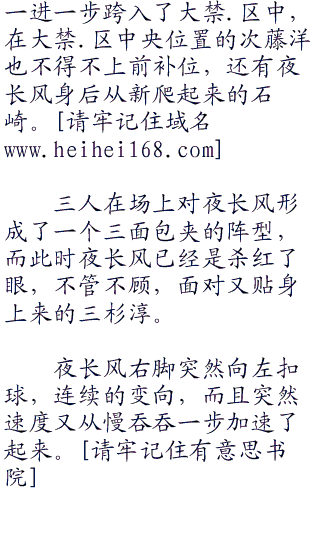 一进一步跨入了大禁.区中，
在大禁.区中央位置的次藤洋
也不得不上前补位，还有夜
长风身后从新爬起来的石
崎。[请牢记住域名
www.heihei168.com]
三人在场上对夜长风形
成了一个三面包夹的阵型，
而此时夜长风已经是杀红了
眼，不管不顾，面对又贴身
上来的三杉淳。
夜长风右脚突然向左扣
球，连续的变向，而且突然
速度又从慢吞吞一步加速了
起来。[请牢记住有意思书
院]